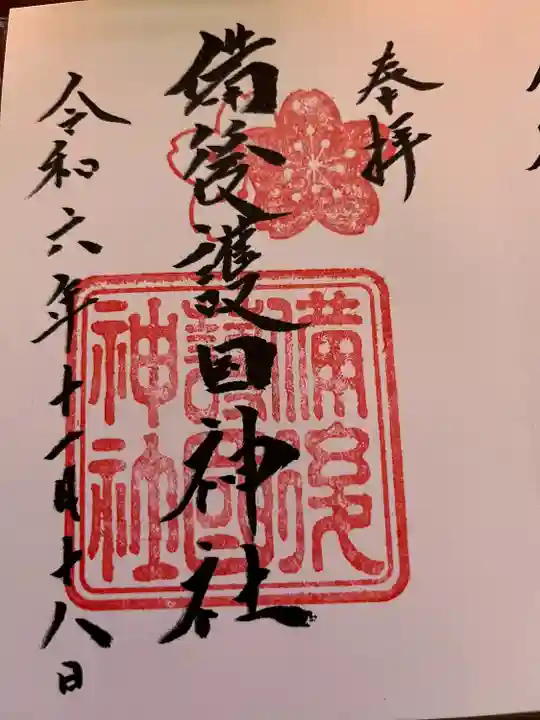 奉拝
備後護国神社
令和六年十一月十八日
備後
護國
神社